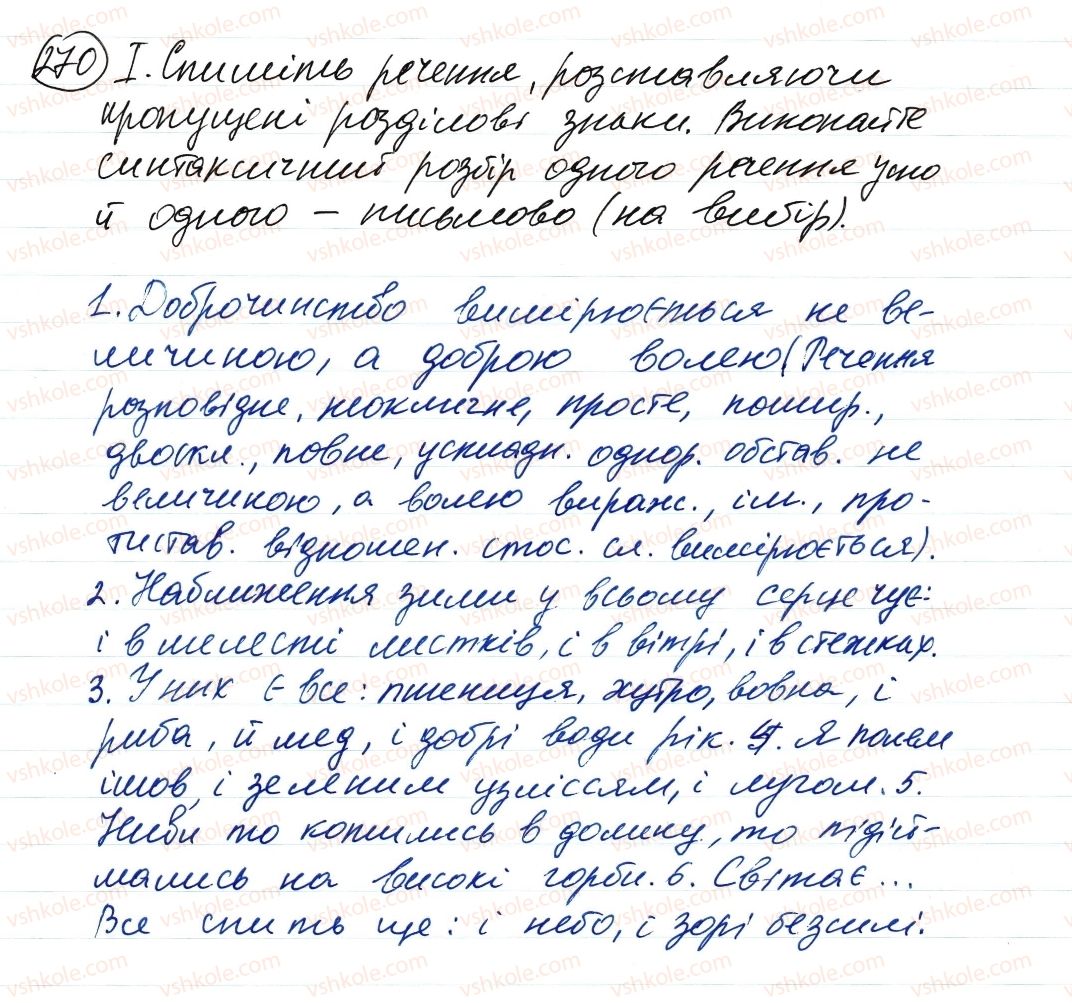 270 І. Спишіть речення, розставляючи
пропущені розділові знаки. Виконайте
синтаксичний розбір одного речення усно
й одного – письмово (на вибір).
1. Доброчинство вимірюється не ве-
личиною, а доброю волею (Речення
розповідне, неокличне, просте, пошир.,
двоскл., повне, ускладн. однор. обстав. не
величиною, а волею вираж., ім., про-
тистав. відношен. стос. сл. вимірюється).
2. Наближення зими у всьому серце чує:
і в шелесті листків, і в вітрі, і в стежках.
3. У них є все: пшениця, хутро, вовна, і
риба, й мед, і добрі води рік. 4. Я полем
ішов, і зеленим узліссям, і лугом. 5.
Ниви то котились в долину, то підій-
мались на високі горби. 6. Світає...
Все спить ще: і небо, і зорі безсилі.